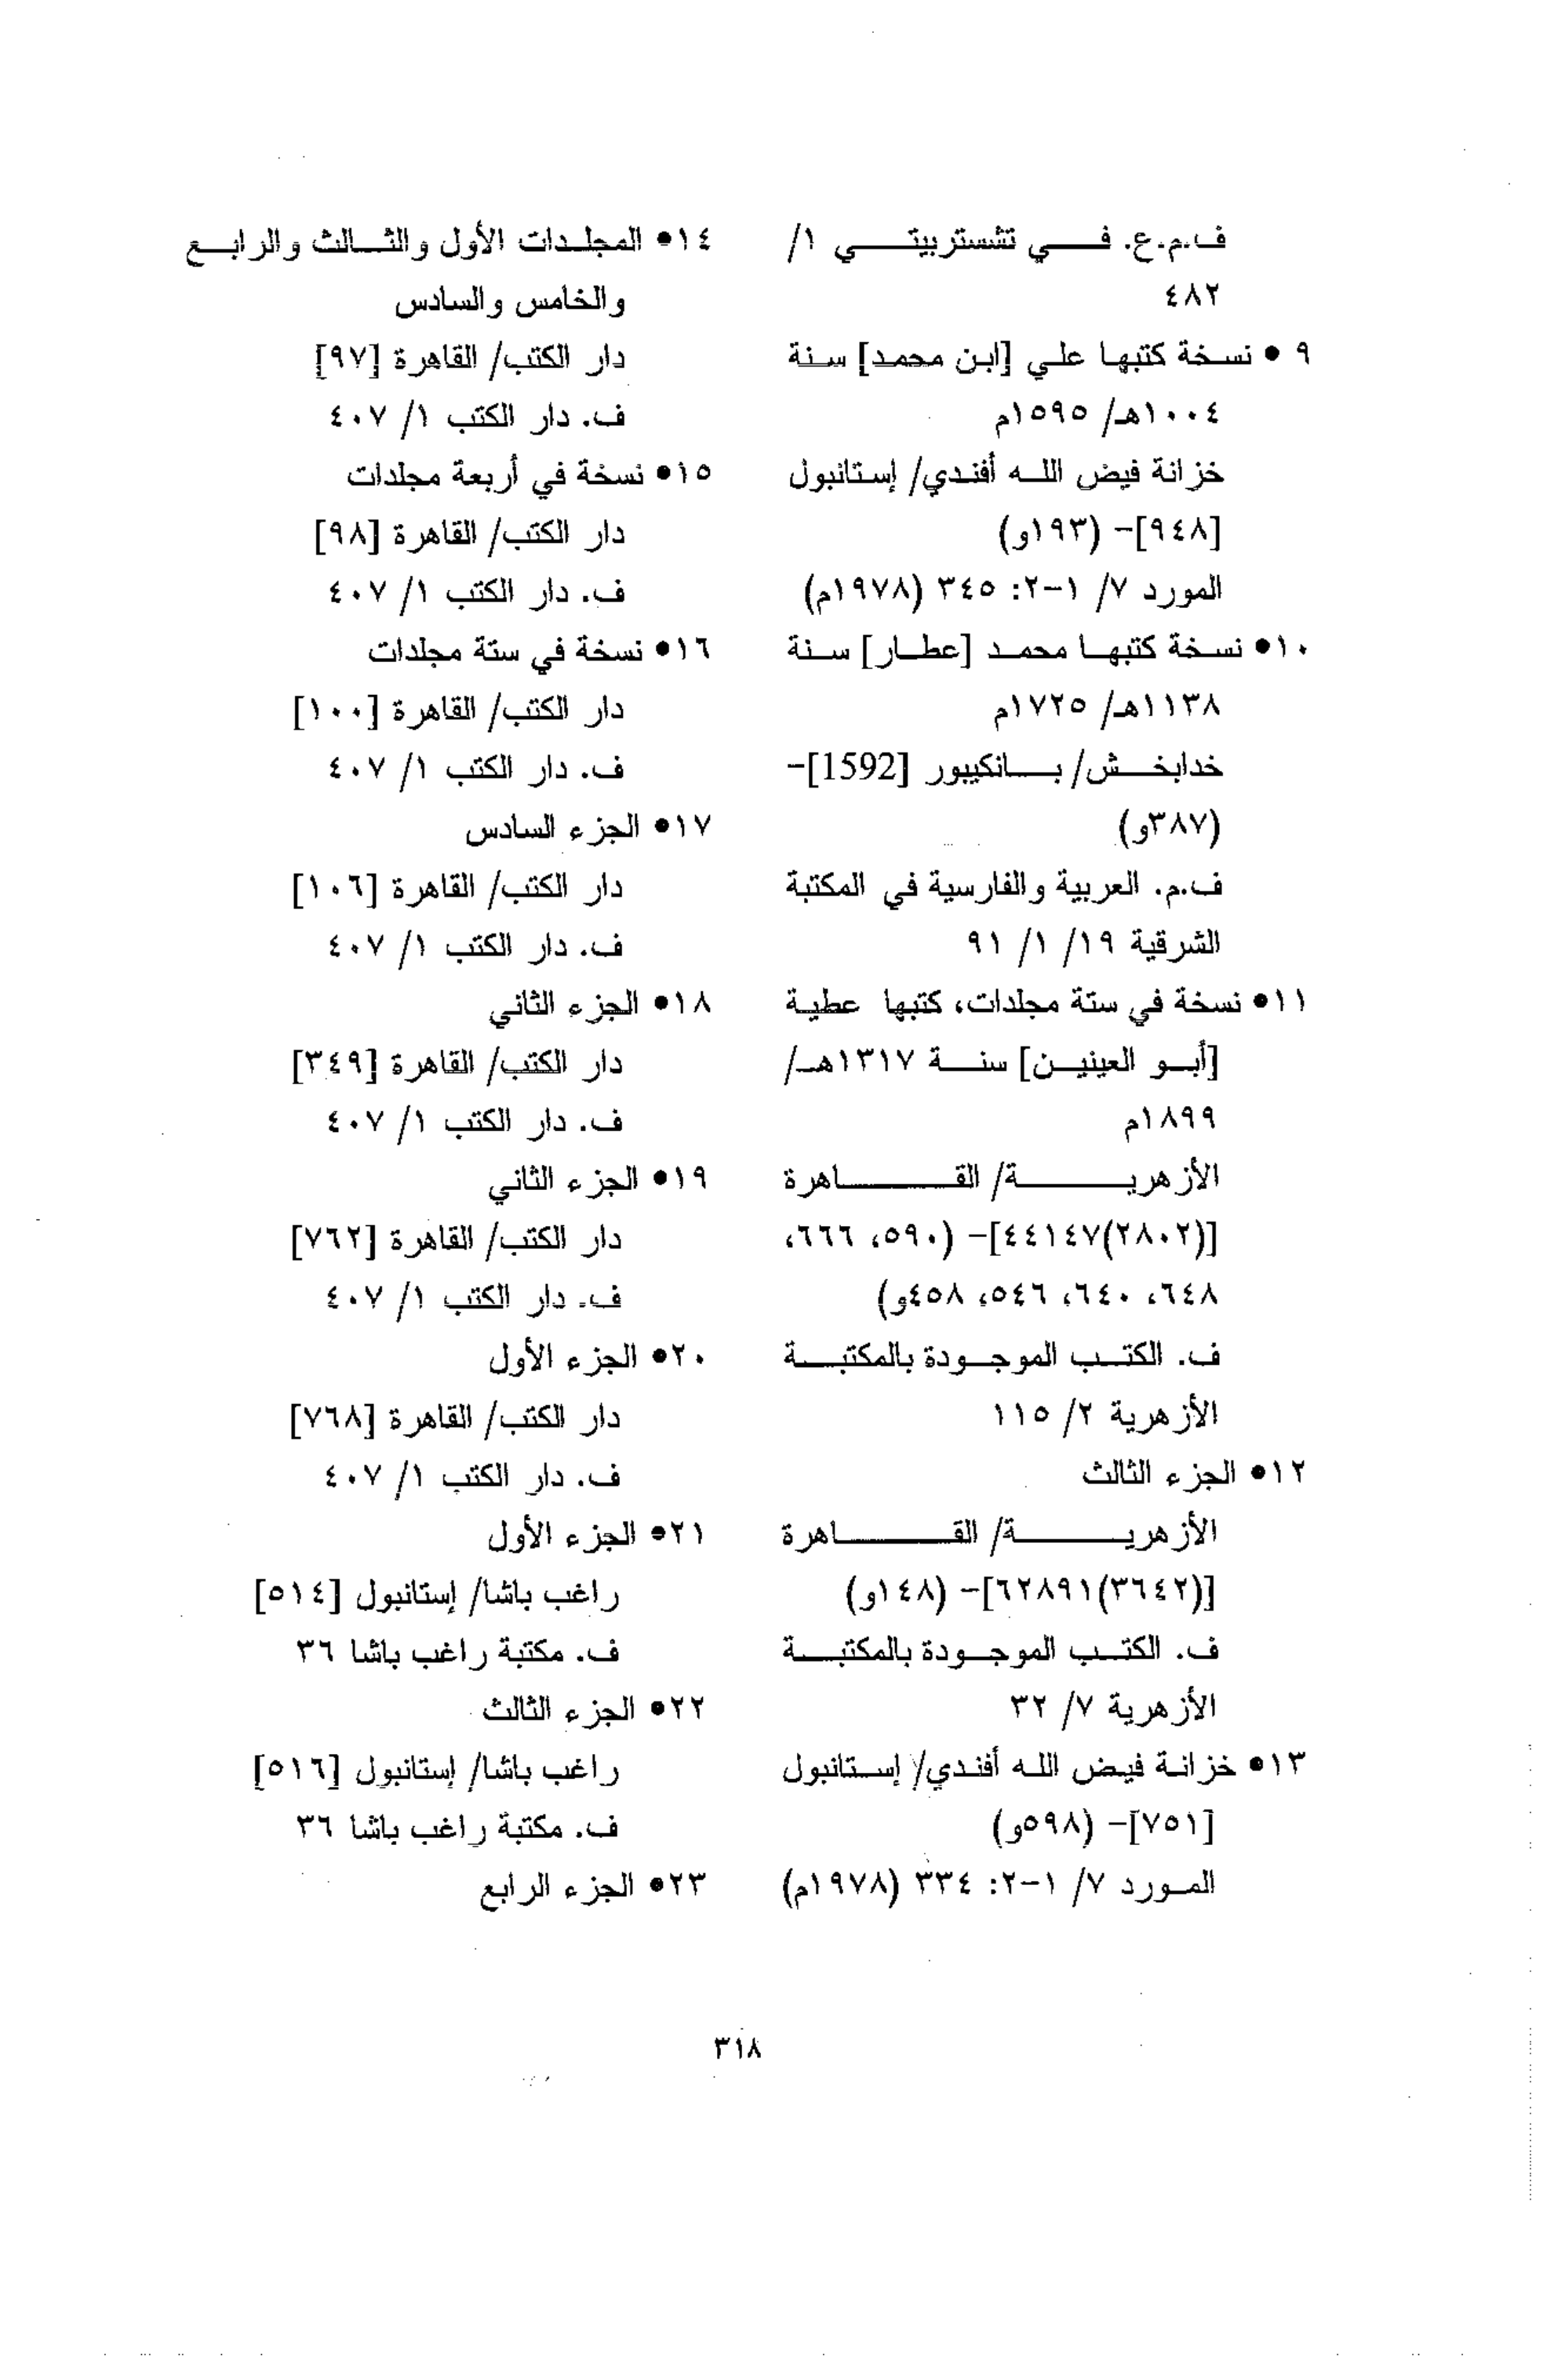 ف.م.ع. في تشستربيتي ١/
٤٨٢
٩ • نسخة كتبها علي [ابن محمد] سنة
١٠٠٤هـ/ ١٥٩٥م
خزانة فيض الله أفندي/ إستانبول
[٩٤٨]- (١٩٣و)
المورد ٧/ ١-٢: ٣٤٥ (١٩٧٨م)
١٠• نسخة كتبها محمد [عطار] سنة
١١٣٨هـ/ ١٧٢٥م
خدابخش/ بانكيبور [1592]-
(٣٨٧و)
ف.م. العربية والفارسية في المكتبة
الشرقية ١٩/ ١/ ٩١
١١• نسخة في ستة مجلدات، كتبها عطية
[أبو العينين] سنة ١٣١٧هـ/
١٨٩٩م
الأزهرية/ القاهرة
[(٢٨٠٢)٤٤١٤٧]- (٥٩٠، ٦٦٦،
٦٤٨، ٦٤٠، ٥٤٦، ٤٥٨و)
ف. الكتب الموجودة بالمكتبة
الأزهرية ٢/ ١١٥
١٢• الجزء الثالث
الأزهرية/ القاهرة
[(٣٦٤٢)٦٢٨٩١]- (١٤٨و)
ف. الكتب الموجودة بالمكتبة
الأزهرية ٧/ ٣٢
١٣• خزانة فيض الله أفندي/ إستانبول
[٧٥١]- (٥٩٨و)
المورد ٧/ ١-٢: ٣٣٤ (١٩٧٨م)
١٤• المجلدات الأول والثالث والرابع
والخامس والسادس
دار الكتب/ القاهرة [٩٧]
ف. دار الكتب ١/ ٤٠٧
١٥• نسخة في أربعة مجلدات
دار الكتب/ القاهرة [٩٨]
ف. دار الكتب ١/ ٤٠٧
١٦• نسخة في ستة مجلدات
دار الكتب/ القاهرة [١٠٠]
ف. دار الكتب ١/ ٤٠٧
١٧• الجزء السادس
دار الكتب/ القاهرة [١٠٦]
ف. دار الكتب ١/ ٤٠٧
١٨• الجزء الثاني
دار الكتب/ القاهرة [٣٤٩]
ف. دار الكتب ١/ ٤٠٧
١٩• الجزء الثاني
دار الكتب/ القاهرة [٧٦٢]
ف. دار الكتب ١/ ٤٠٧
٢٠• الجزء الأول
دار الكتب/ القاهرة [٧٦٨]
ف. دار الكتب ١/ ٤٠٧
٢١• الجزء الأول
راغب باشا/ إستانبول [٥١٤]
ف. مكتبة راغب باشا ٣٦
٢٢• الجزء الثالث
راغب باشا/ إستانبول [٥١٦]
ف. مكتبة راغب باشا ٣٦
٢٣• الجزء الرابع
٣١٨